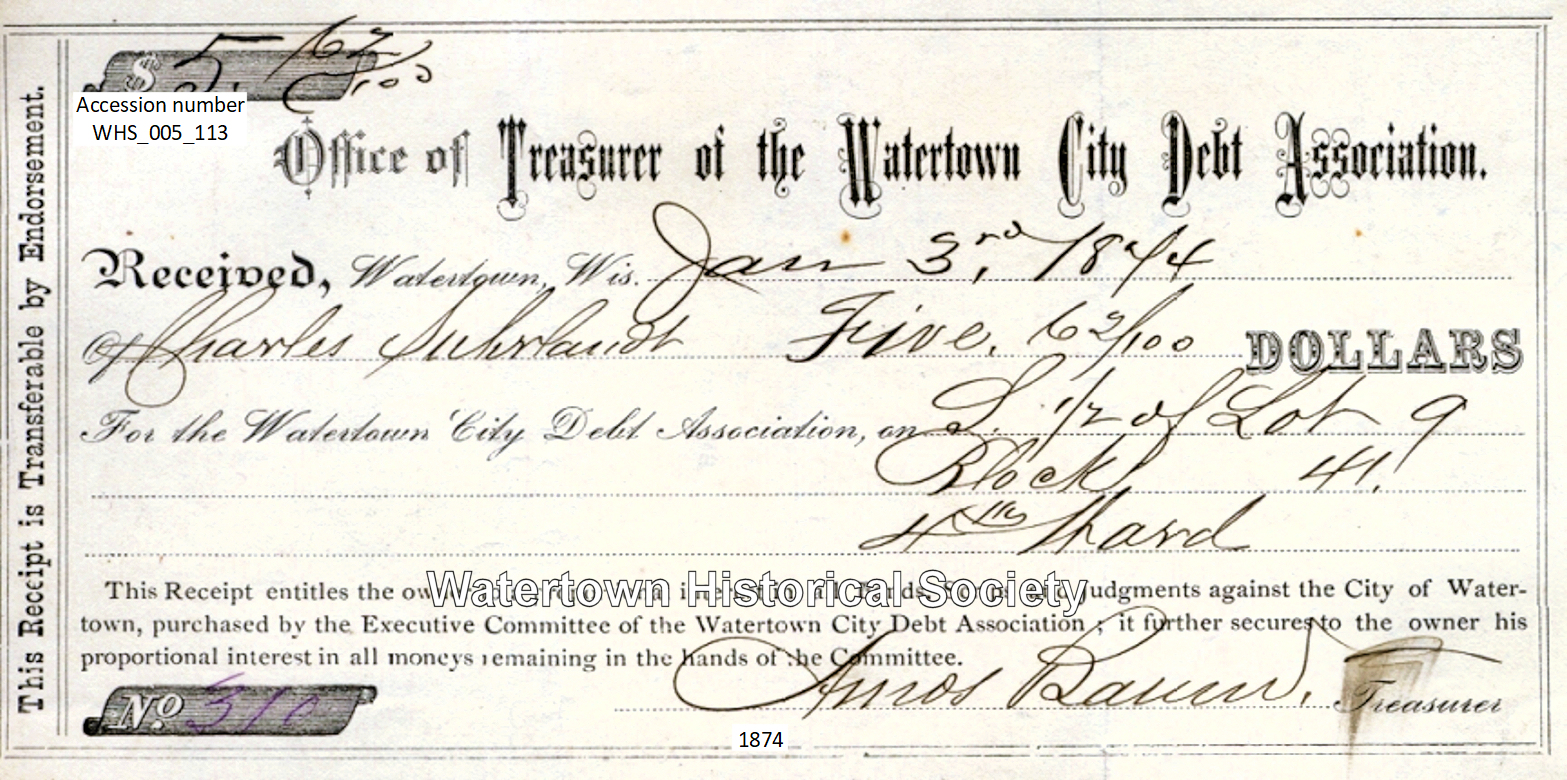 $ 5. 62/100
Accession number
WHS_005_113
Office of Treasurer of the Watertown City Debt Association.
Received, Watertown, Wis. Jan 3rd, 1874
Of Charles Suhrlandt Five. 62/100 DOLLARS
For the Watertown City Debt Association, on S. 1/2 of Lot 9
Block 41.
4th Ward
Watertown Historical Society
This Receipt entitles the owner to a proportional interest in all Bonds, Scrips and judgments against the City of Water-
town, purchased by the Executive Committee of the Watertown City Debt Association ; it further secures to the owner his
proportional interest in all moneys remaining in the hands of the Committee.
Amos Baum, Treasurer
No 310
1874
This Receipt is Transferable by Endorsement.